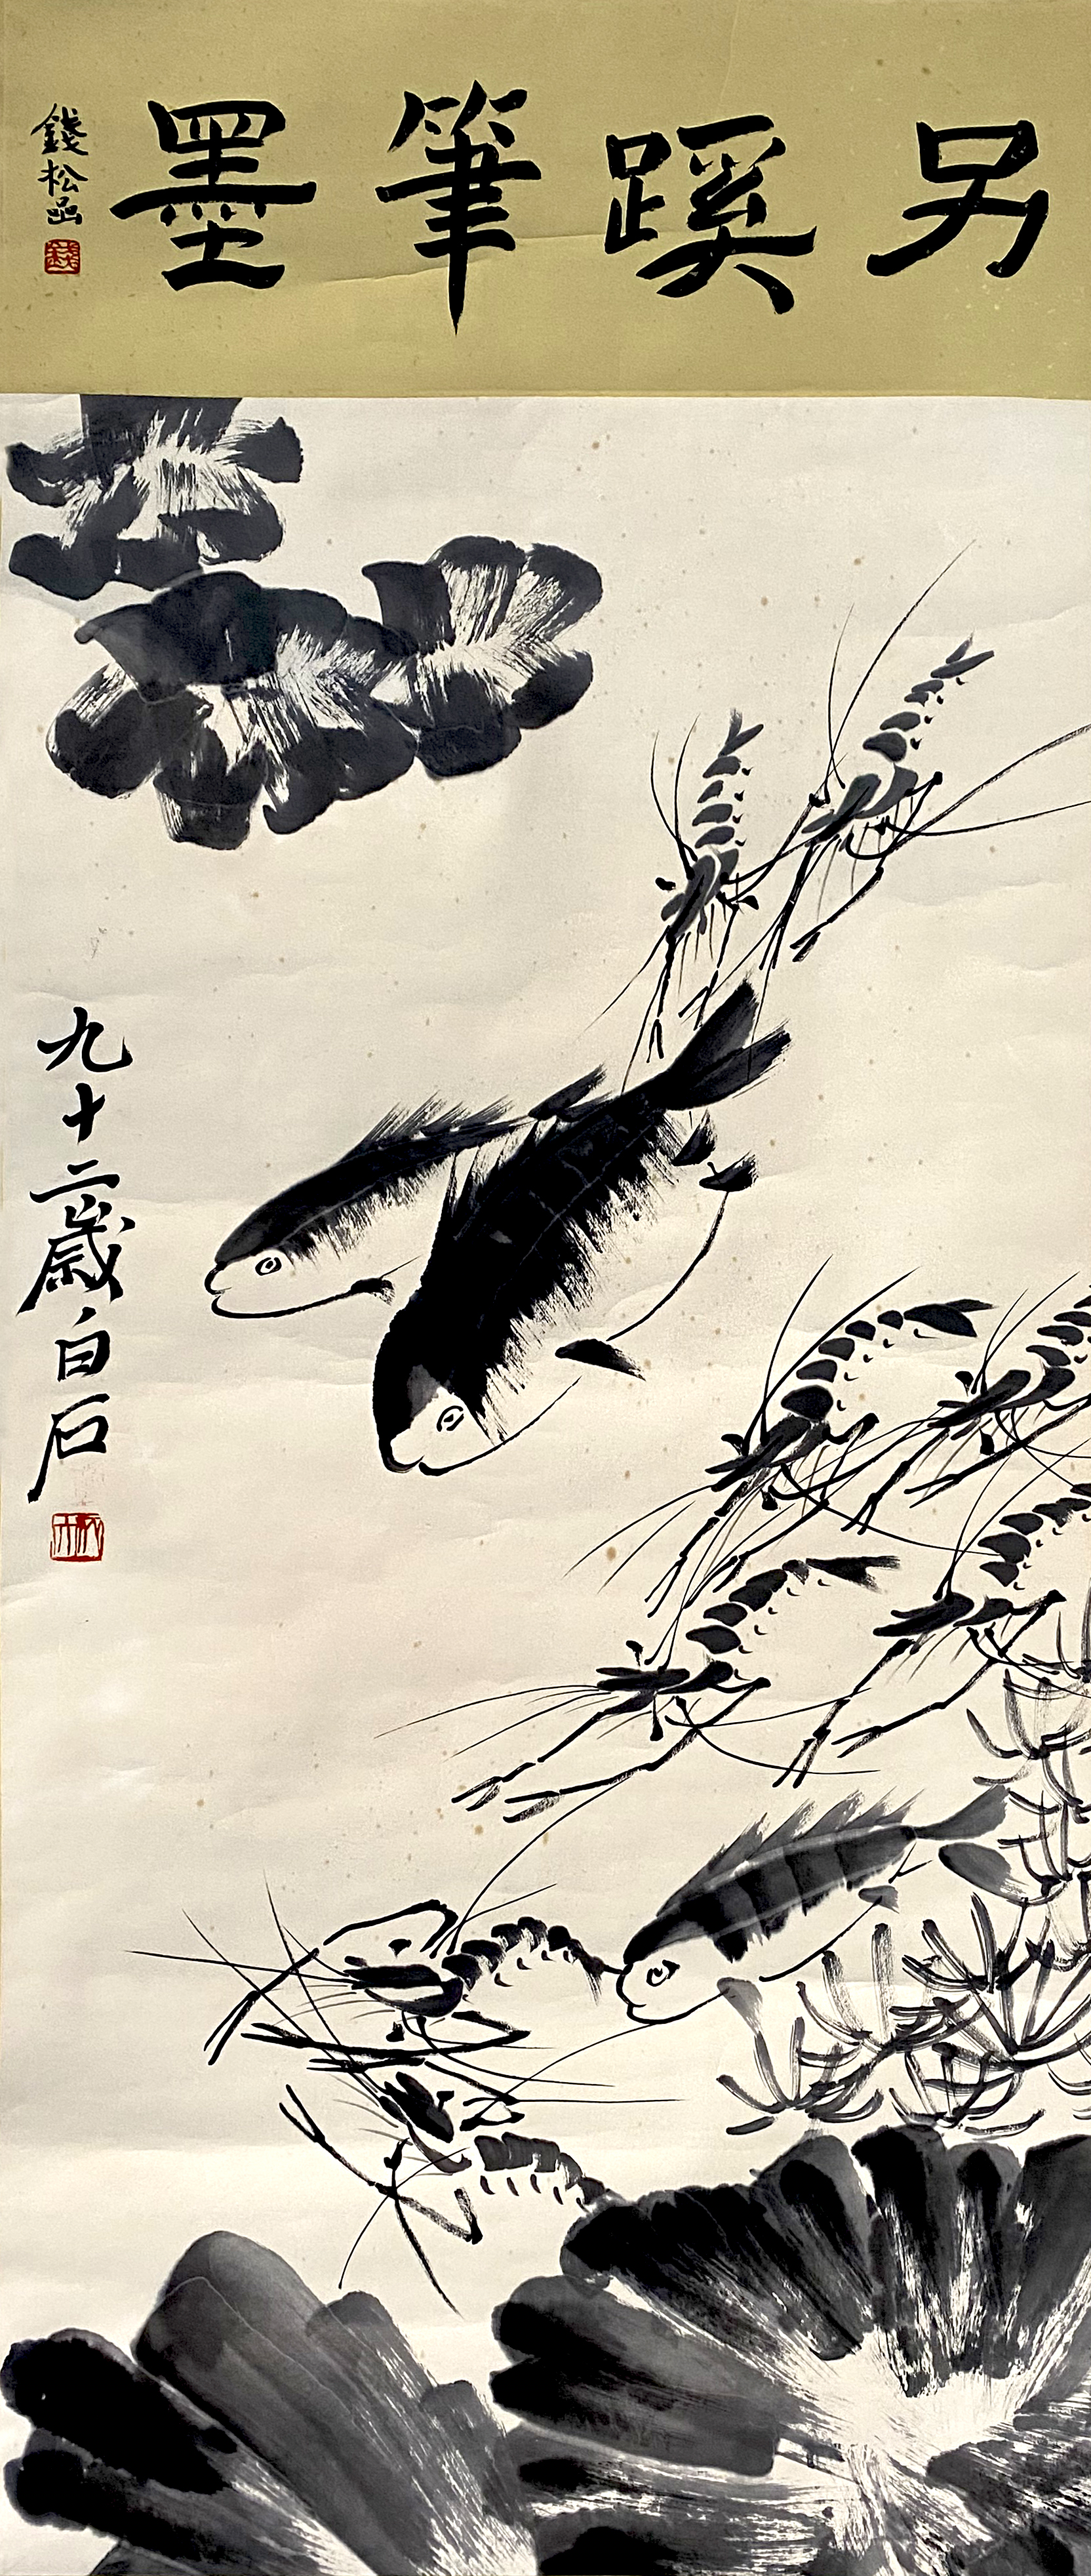 另蹊筆墨
錢松喦
九十二歲白石